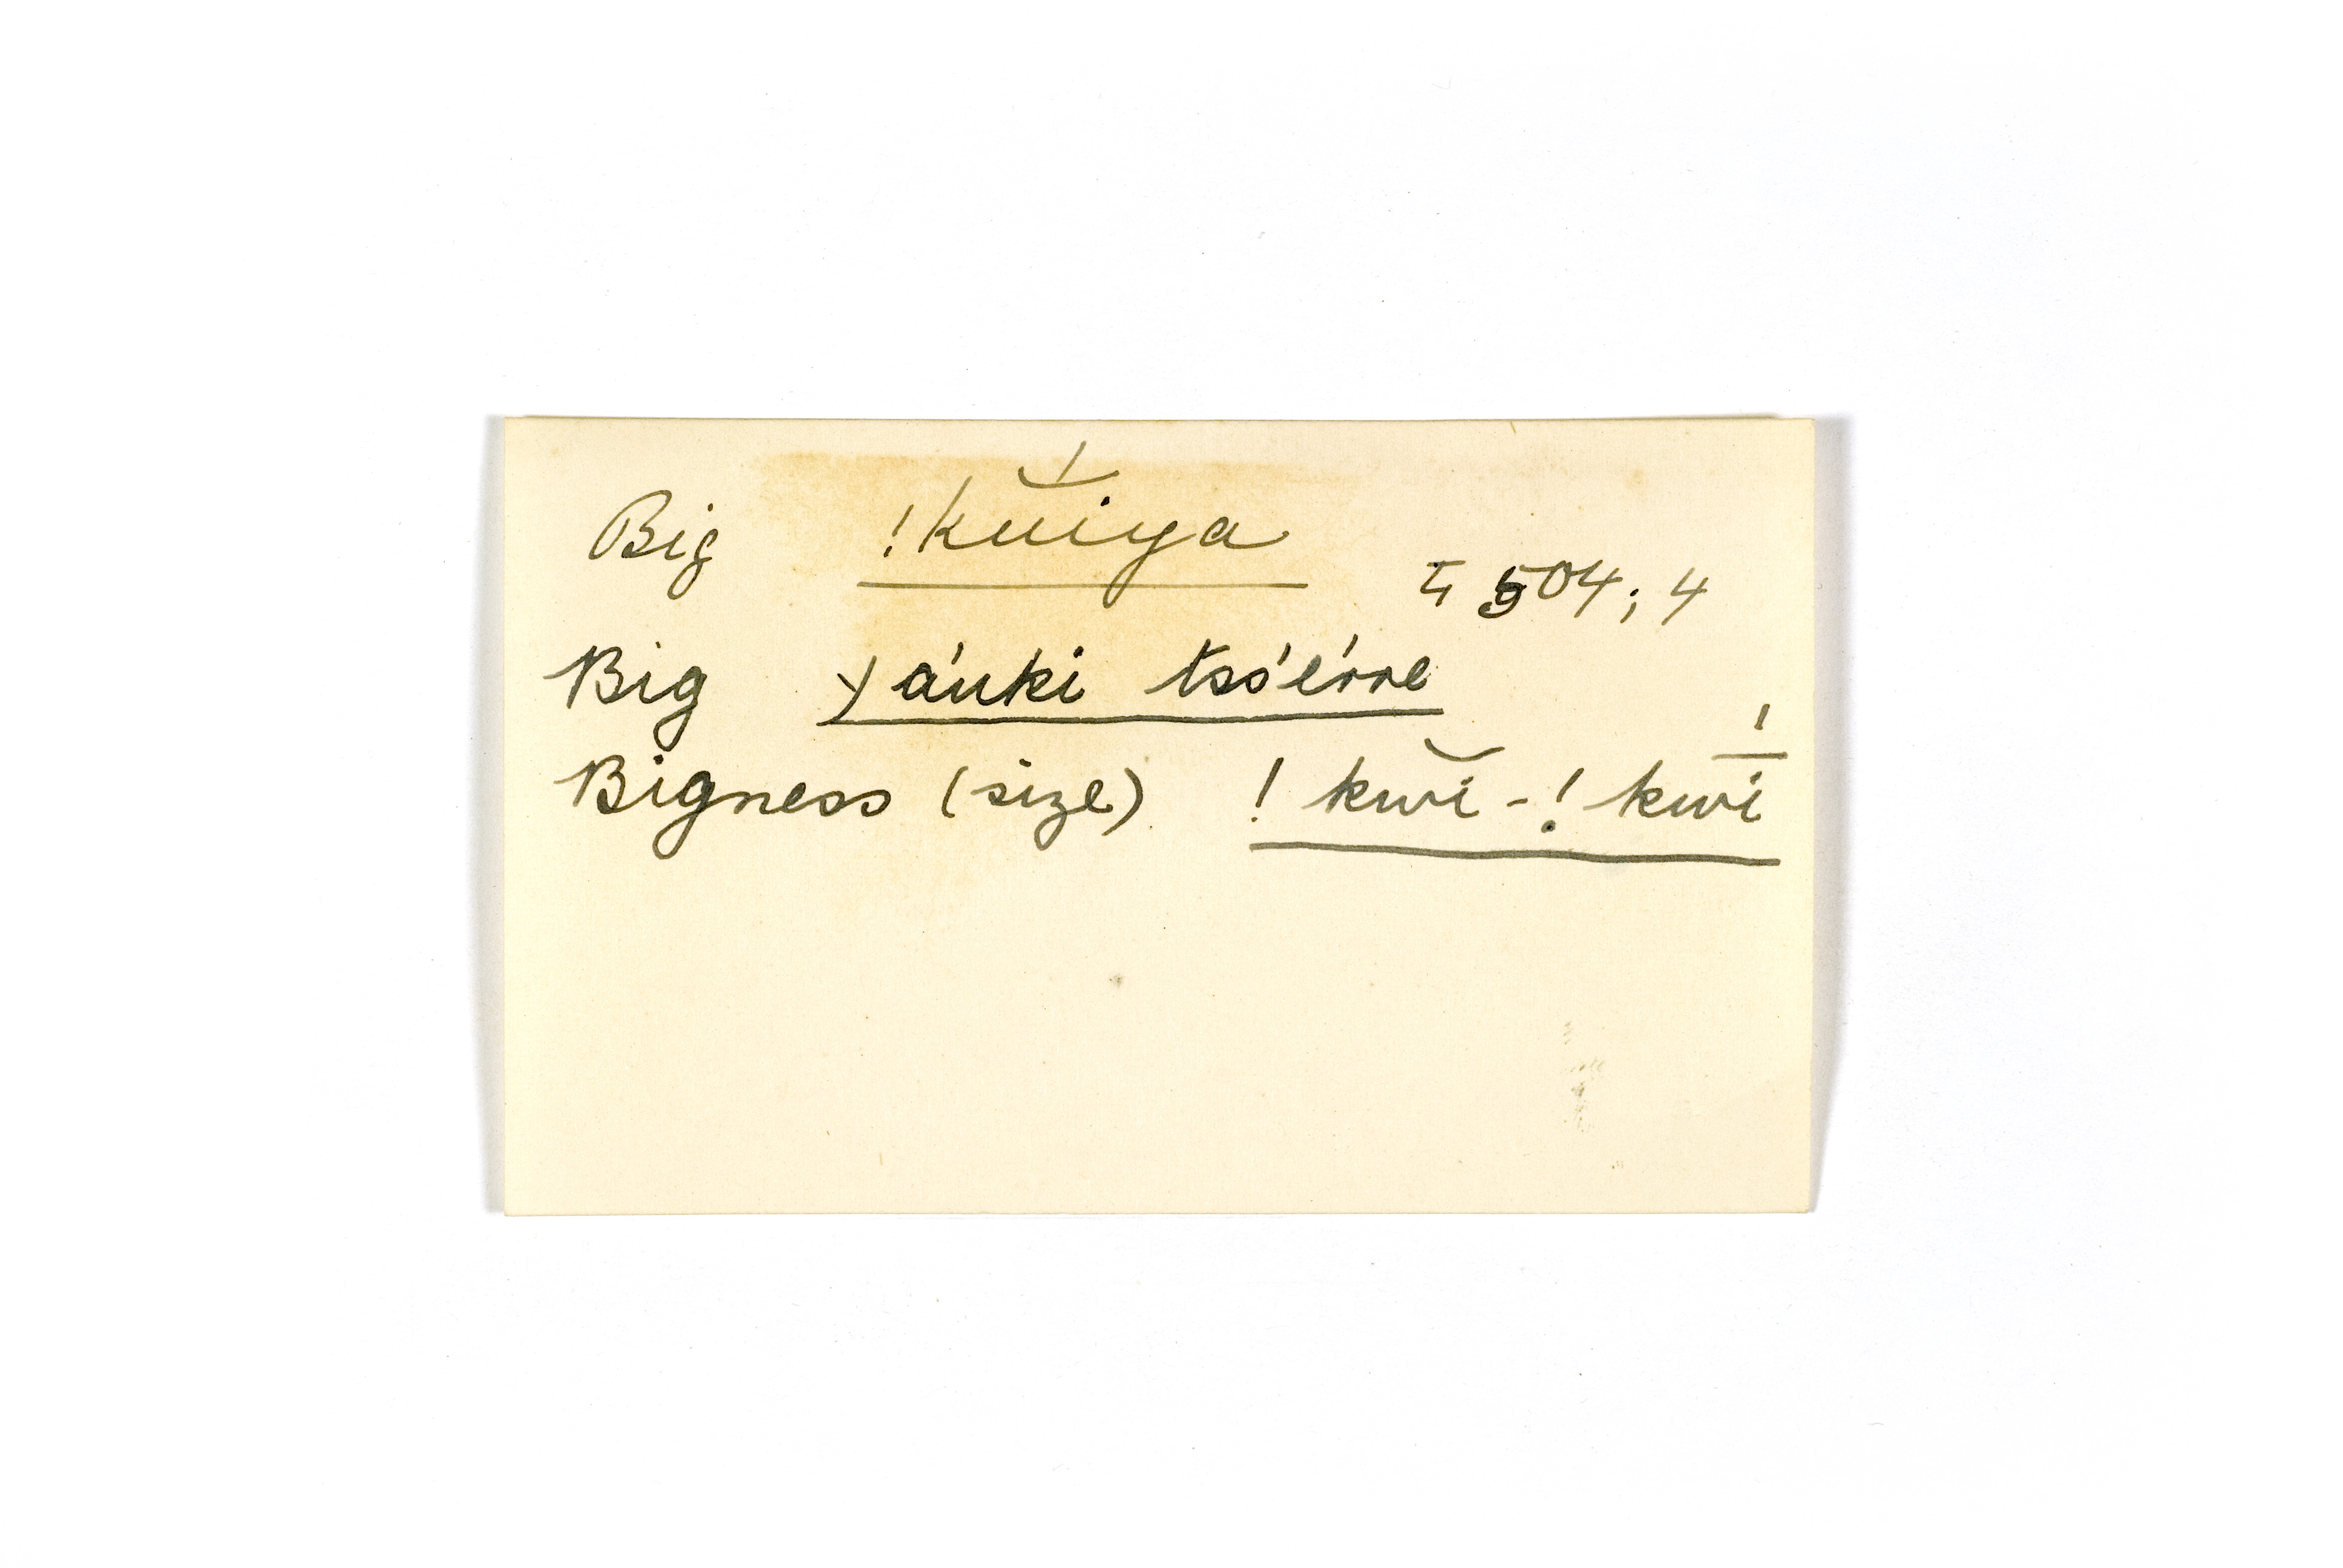 Big !kŭ́iya
504; 4
Big Ɣáuki tsó'érre
Bigness (size) !kwĭ-!kwī́